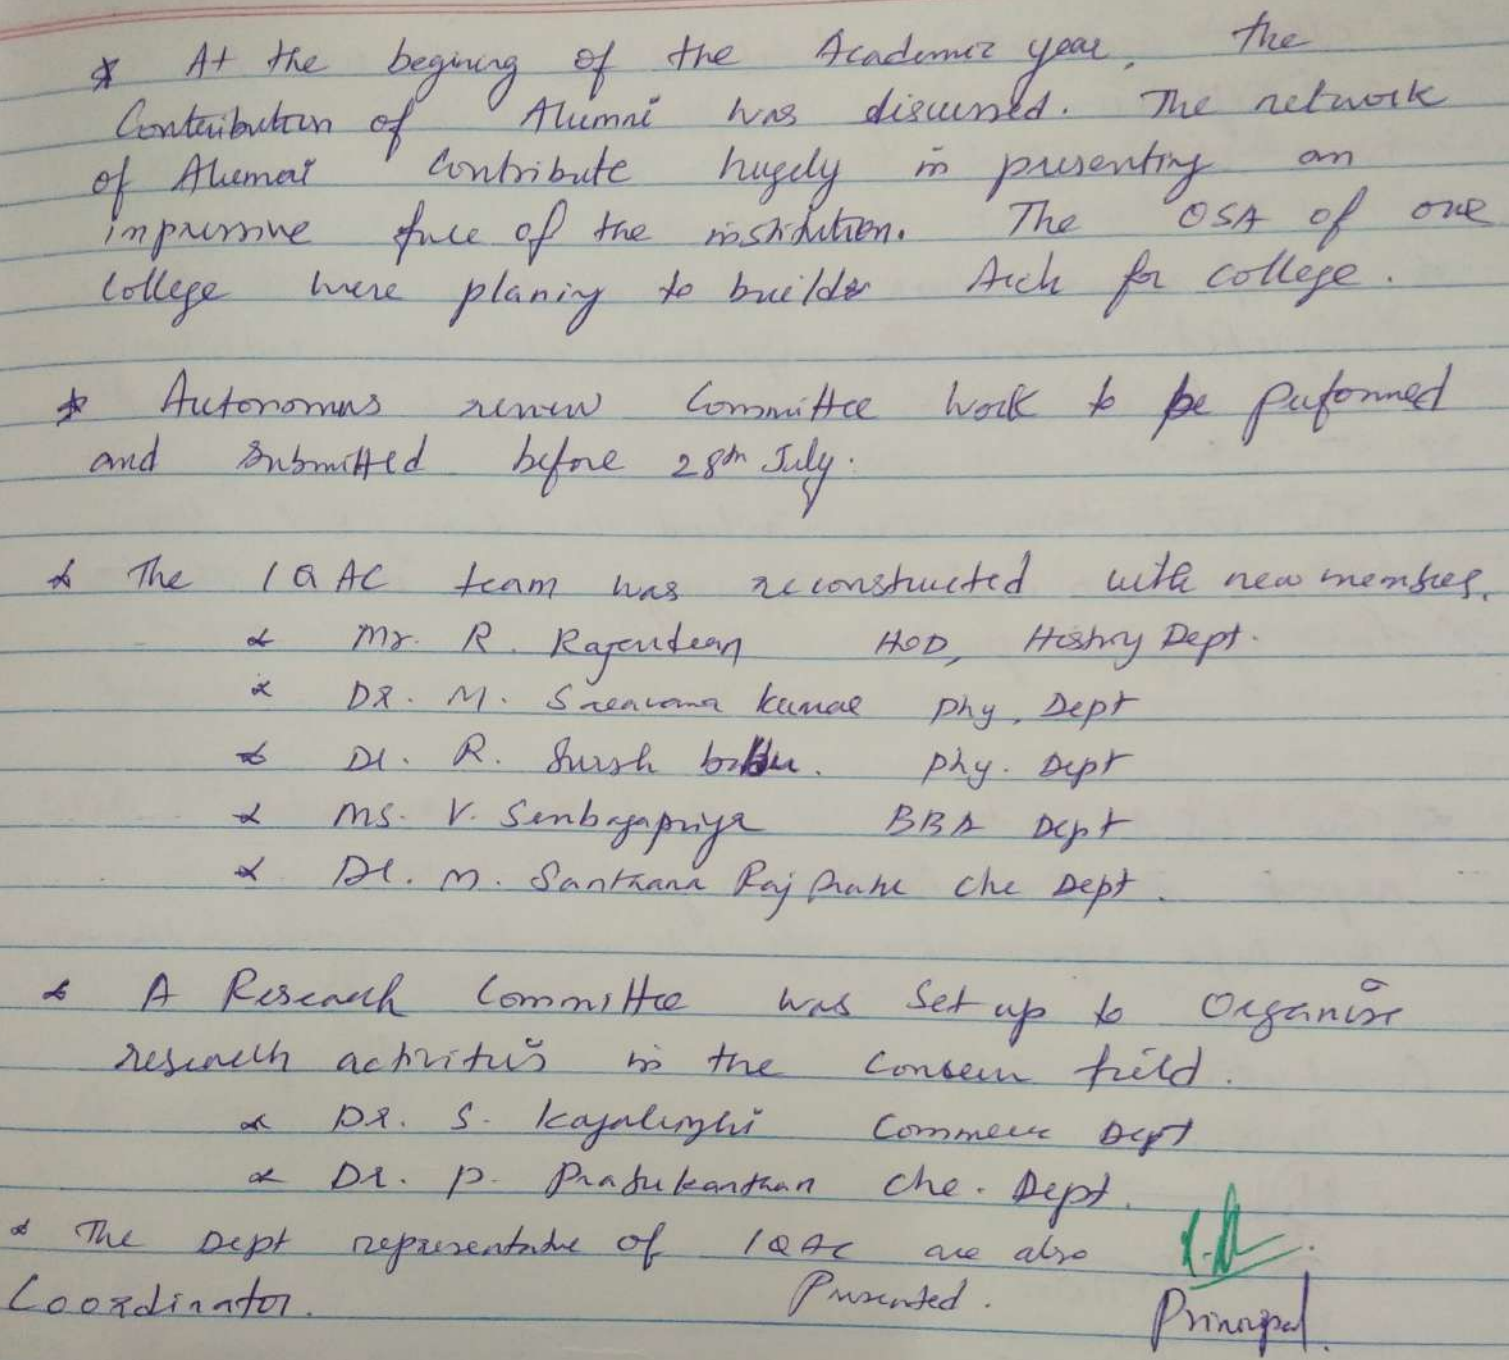 * At the begining of the Academic year, the
Contribution of Alumni was discussed. The network
of Alumni contribute hugely in presenting an
impressive face of the institution. The OSA of our
College were planing to builde Arch for college.
* Autonomous review Committee work to be performed
and submitted before 28th July.
* The IQAC team was reconstructed with new members.
* Mr. R. Rajendran HOD, History Dept.
* Dr. M. Saravana kumar Phy. Dept
* Dr. R. Sursh babu. Phy. Dept
* Ms. V. Senbagapriya BBA Dept
* Dr. M. Santhana Raj Che Dept.
* A Research Committee was set up to Organise
research activities in the concern field.
* Dr. S. Commerce Dept
* Dr. P. Prabukanthan Che. Dept.
* The Dept representative of IQAC are also
Presented.
Coordinator.
Principal.